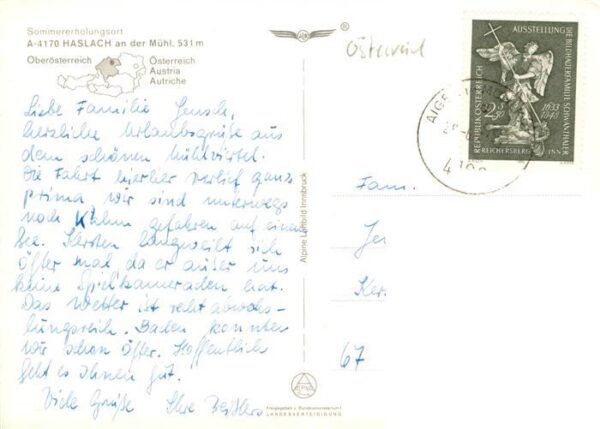 Sommererholungsort
A-4170 HASLACH an der Mühl, 531 m
Oberösterreich
Österreich
Austria
Autriche
Liebe Familie
herzliche Urlaubsgrüße aus
dem schönen Mühlviertel.
Die Fahrt hierher verlief ganz
prima, wir sind unterwegs
noch Kahn gefahren auf einem
See. Kersten langweilt sich
öfter mal, da er außer uns
keine Spielkameraden hat.
Das Wetter ist recht abwechs-
lungsreich. Baden konnten
wir schon öfter. Hoffentlich
geht es Ihnen gut.
Viele Grüße Ihre
Alpine Luftbild Innsbruck
ALPINE
Freigegeben v. Bundesministerium f.
LANDESVERTEIDIGUNG
Österreich
AUSSTELLUNG
DIE BILDHAUERFAMILIE SCHWANTHALER
REPUBLIK ÖSTERREICH
2 S 50
1633
1848
REICHERSBERG
INN
4
Fam.
Je
Ker.
67